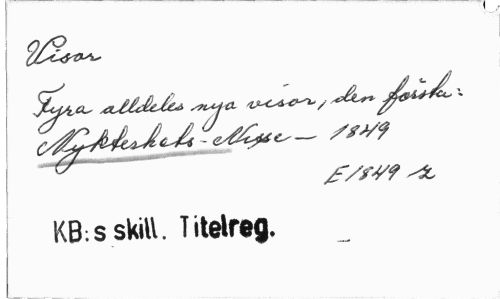 Visor
Fyra alldeles nya visor, den första:
Nykterhets-Nisse — 1849
E 1849
KB:s skill. Titelreg.